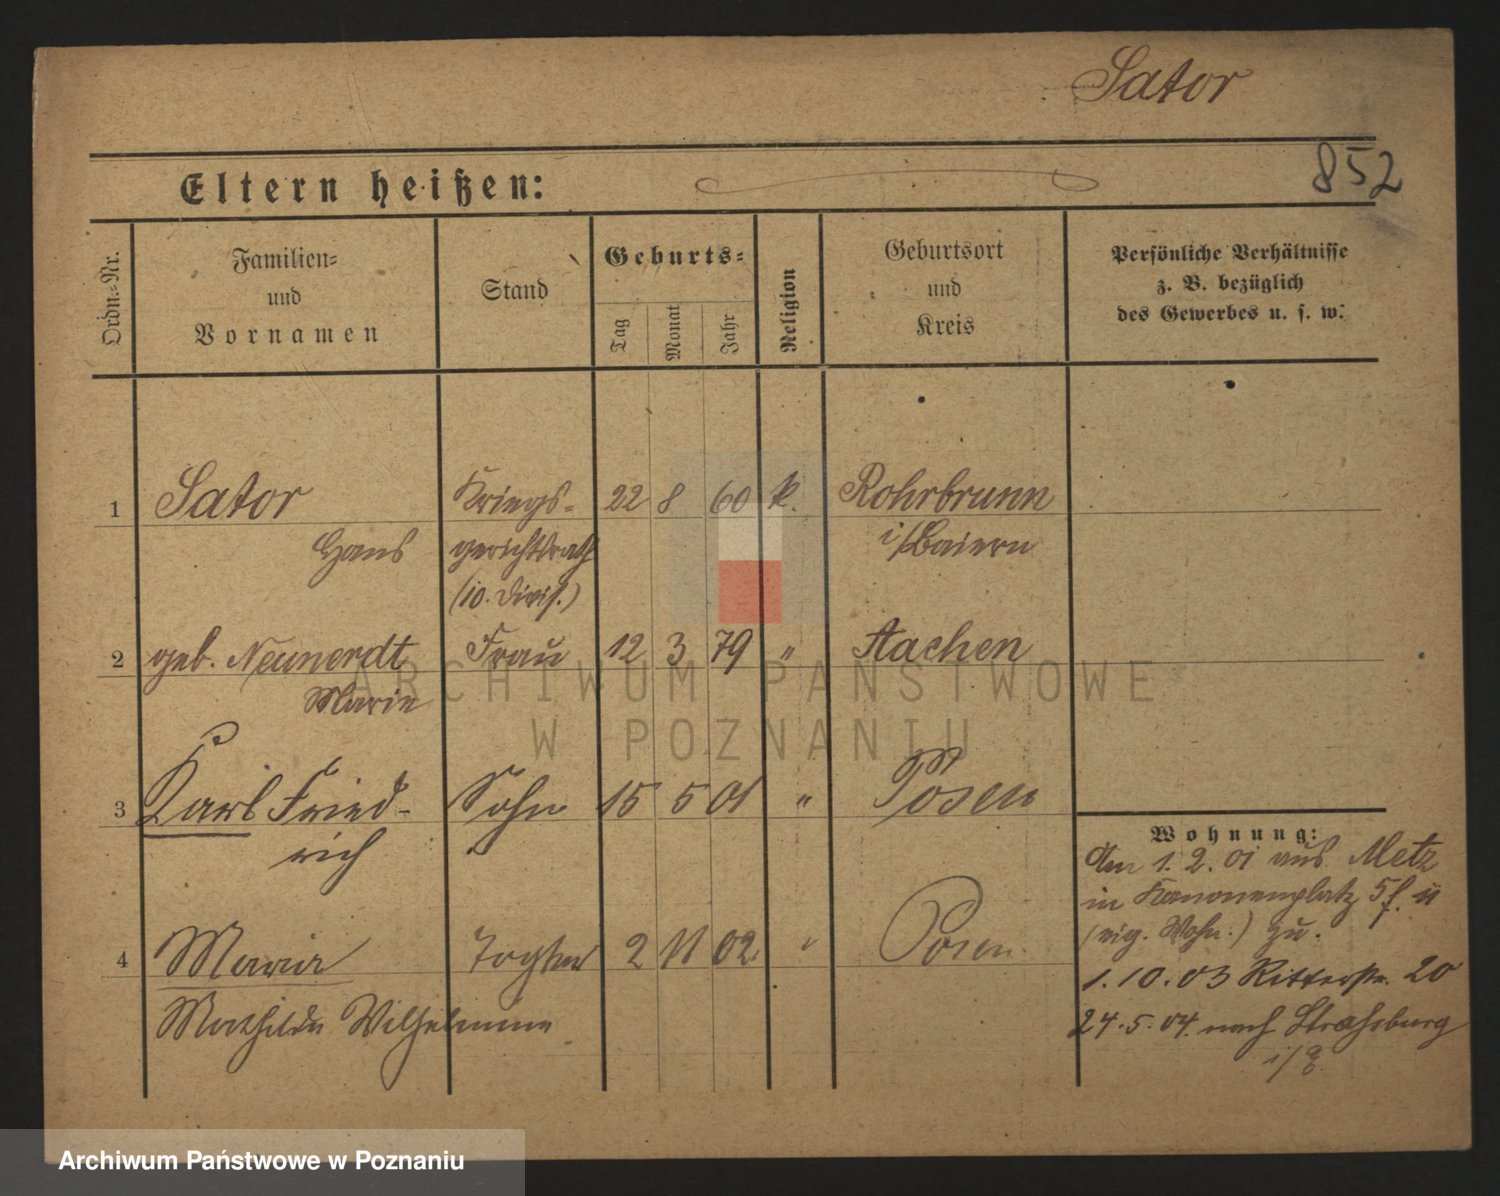 Sator
852
Eltern heißen:
Ordn.-Nr.
Familien-
und
Vornamen
Stand
Geburts-
Tag
Monat
Jahr
Religion
Geburtsort
und
Kreis
Persönliche Verhältnisse
z. B. bezüglich
des Gewerbes u. s. w.
1 Sator Kriegs- 22 8 60 k. Rohrbrunn
Hans gerichtsrath i/Baiern
(10. Divis.)
2 geb. Neunerdt Frau 12 3 79 " Aachen
Marie
3 Karl Fried- Sohn 15 5 01 " Posen
rich
4 Maria Tochter 2 11 02. " Posen
Mathilde Wilhelmine
Wohnung:
Am 1. 2. 01 aus Metz
in Kanonenplatz 5
(eig. Wohn.) zu.
1. 10. 03 Ritterstr. 20
24. 5. 04. nach Strassburg
i/E
ARCHIWUM PAŃSTWOWE
W POZNANIU
Archiwum Państwowe w Poznaniu